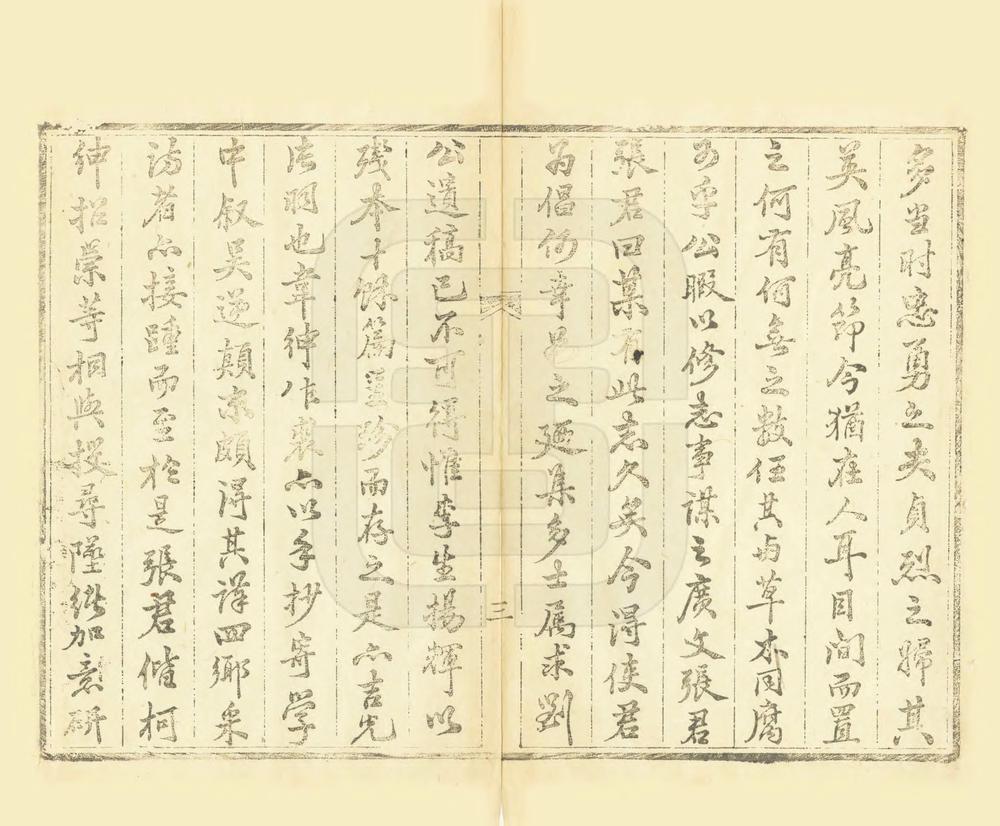 多当时忠勇之夫貞烈之婦其
英風亮節今猶在人耳目間而置
之何有何無之數任其与草木同腐
可乎公暇以修志事謀之廣文張君
張君曰某有此志久矣今得使君
為倡何幸邑之廼集多士属求劉
三
公遺稿已不可得惟李生揚輝以
残本十餘篇
珍而存之是亦吉光
片羽也韋紳作
亦以手抄寄学
中叙吴逆顛末頗得其詳四鄉采
訪者亦接踵而至於是張君偕柯
紳招棠等相與搜尋墜緒加意研